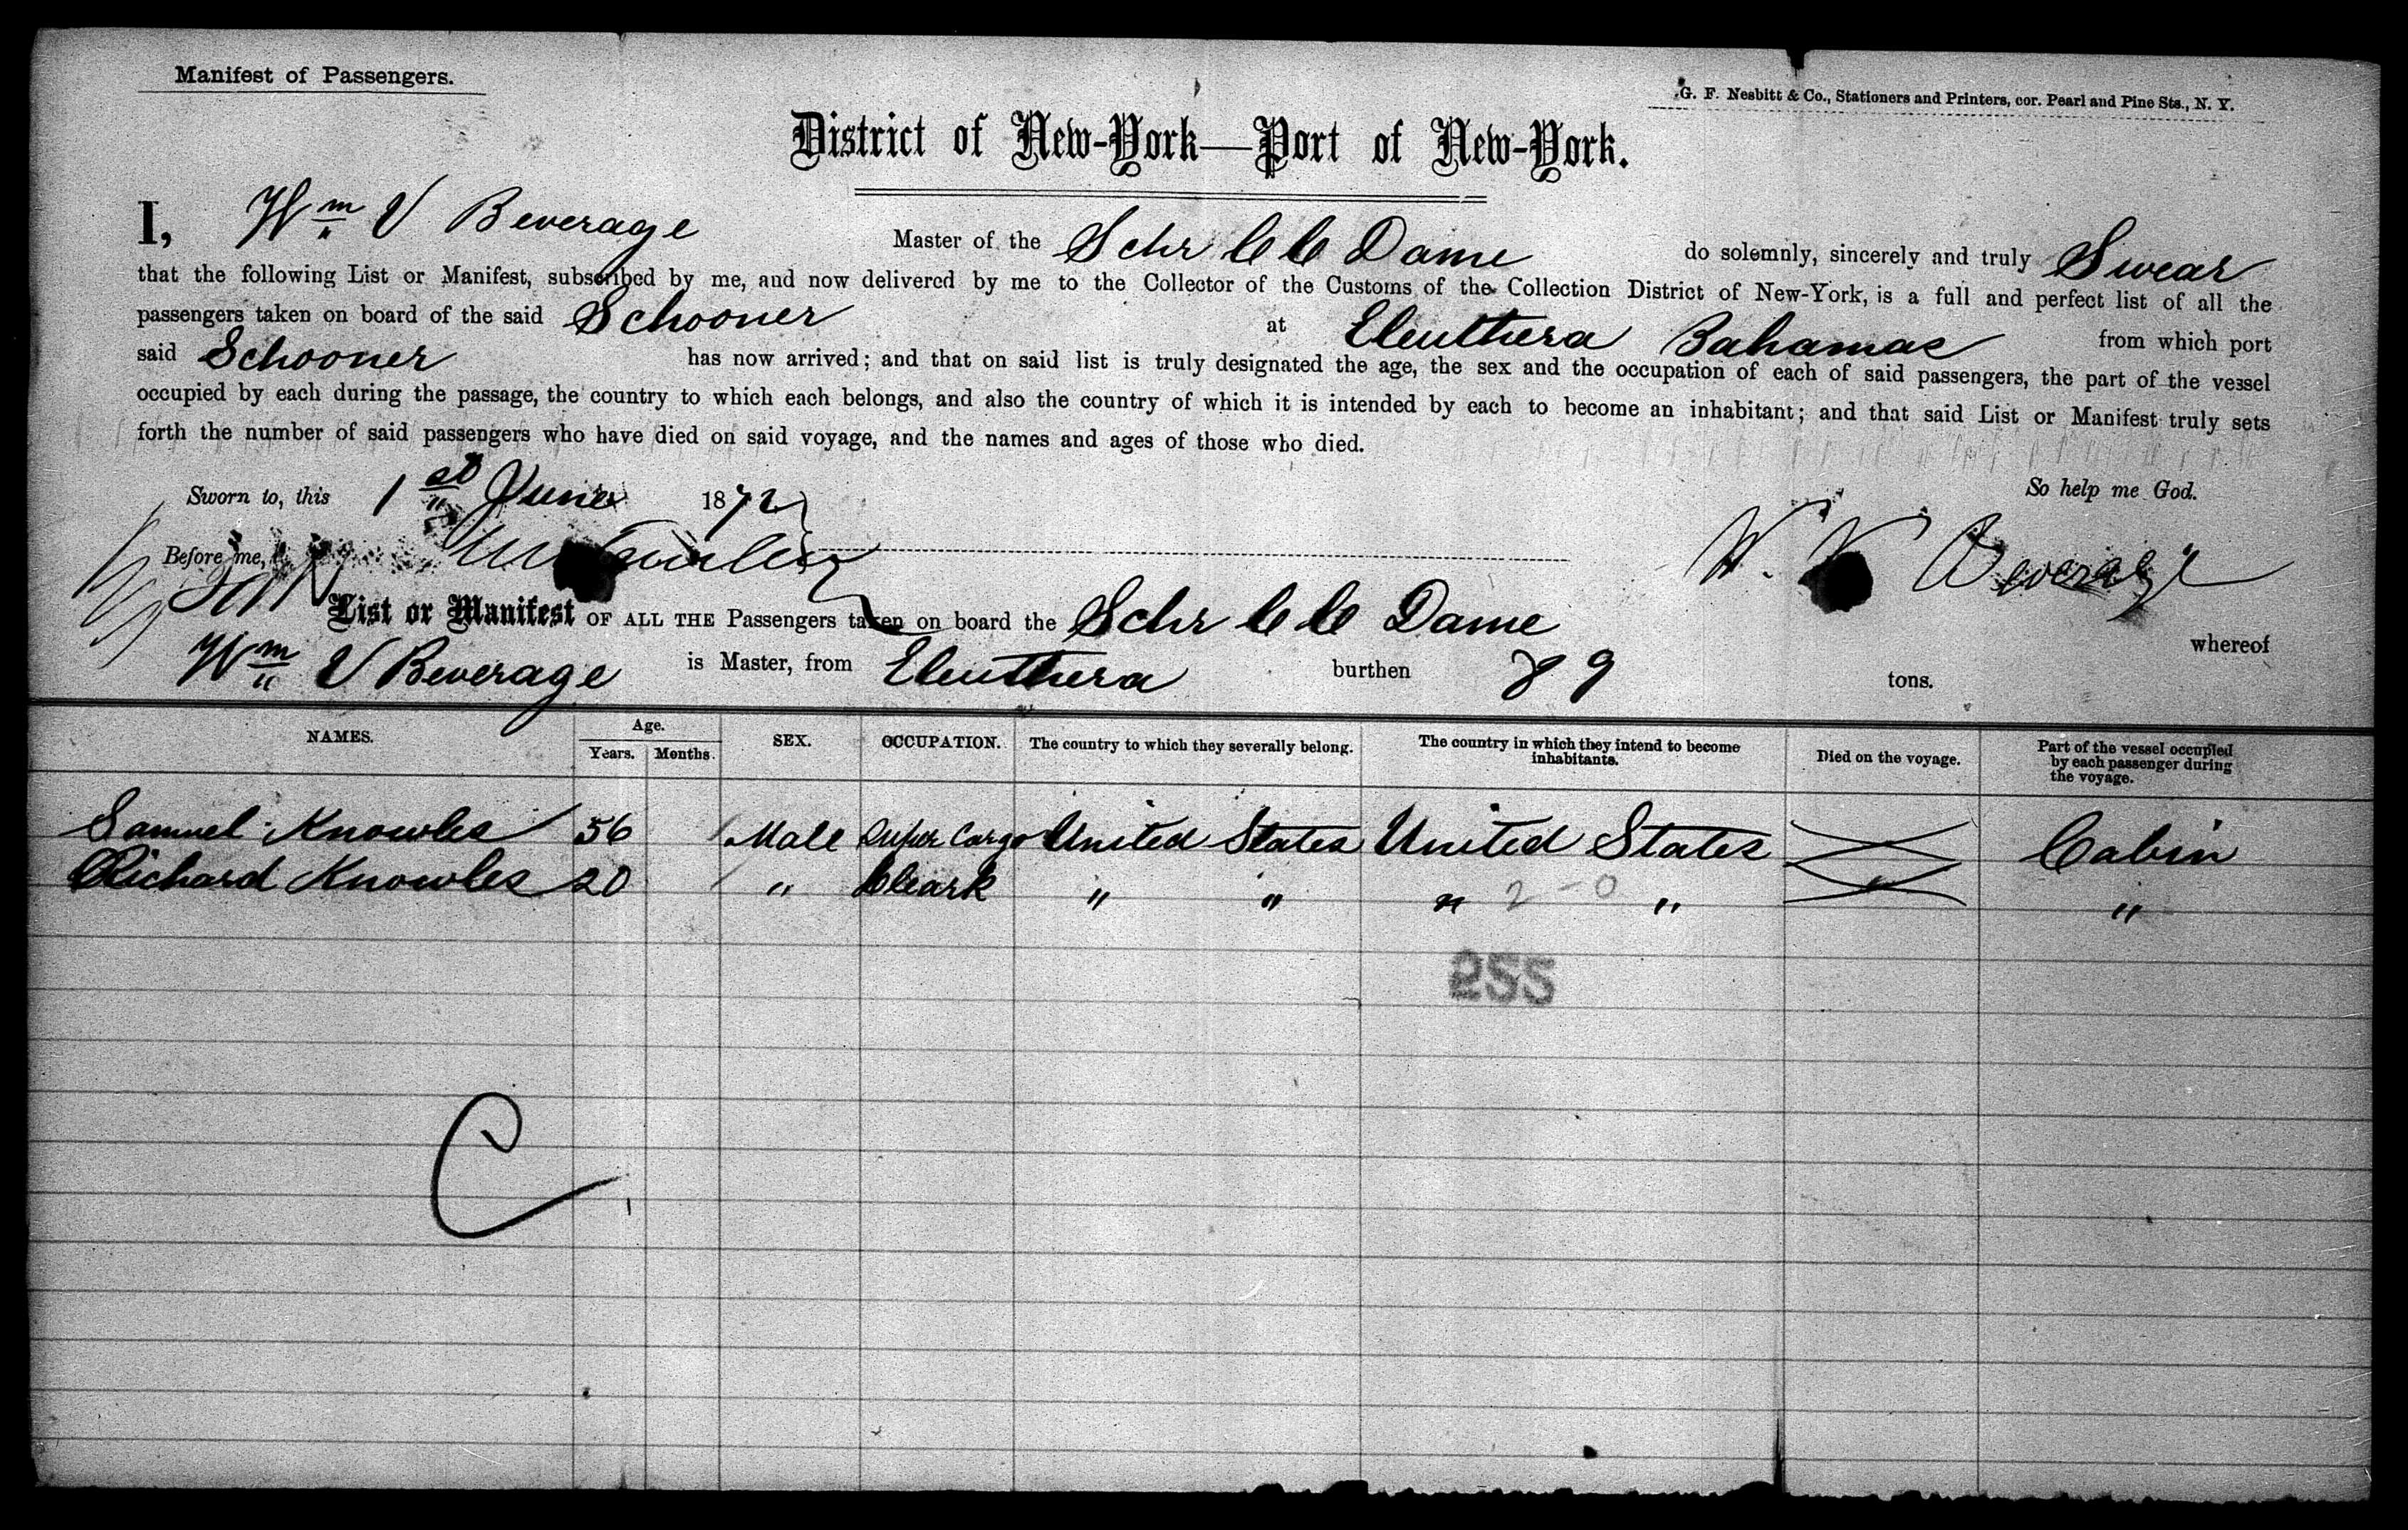 Manifest of Passengers.
G. F. Nesbitt & Co., Stationers and Printers, cor. Pearl and Pine Sts., N. Y.
District of New-York—Port of New-York.
I, Wm V Beverage Master of the Schr C C Dame do solemnly, sincerely and truly Swear
that the following List or Manifest, subscribed by me, and now delivered by me to the Collector of the Customs of the Collection District of New-York, is a full and perfect list of all the
passengers taken on board of the said Schooner at Eleuthera Bahamas from which port
said Schooner has now arrived; and that on said list is truly designated the age, the sex and the occupation of each of said passengers, the part of the vessel
occupied by each during the passage, the country to which each belongs, and also the country of which it is intended by each to become an inhabitant; and that said List or Manifest truly sets
forth the number of said passengers who have died on said voyage, and the names and ages of those who died.
Sworn to, this 1st June 1872 So help me God.
Before me, W. V. Beverage
List or Manifest OF ALL THE Passengers taken on board the Schr C C Dame whereof
Wm V Beverage is Master, from Eleuthera burthen 89 tons.
NAMES. Age. Years. Months. SEX. OCCUPATION. The country to which they severally belong. The country in which they intend to become inhabitants. Died on the voyage. Part of the vessel occupied by each passenger during the voyage.
Samuel Knowles 56 Male Super Cargo United States United States Cabin
Richard Knowles 20 " Cleark " " " 2-0 " " "
255
C